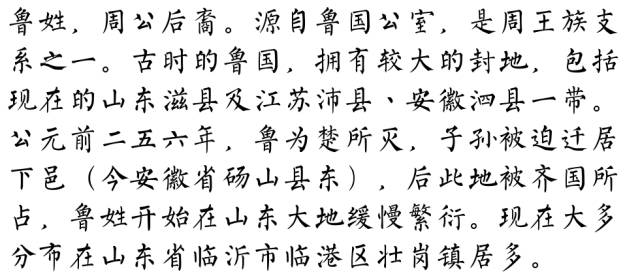 鲁姓，周公后裔。源自鲁国公室，是周王族支
系之一。古时的鲁国，拥有较大的封地，包括
现在的山东滋县及江苏沛县、安徽泗县一带。
公元前二五六年，鲁为楚所灭，子孙被迫迁居
下邑（今安徽省砀山县东），后此地被齐国所
占，鲁姓开始在山东大地缓慢繁衍。现在大多
分布在山东省临沂市临港区壮岗镇居多。